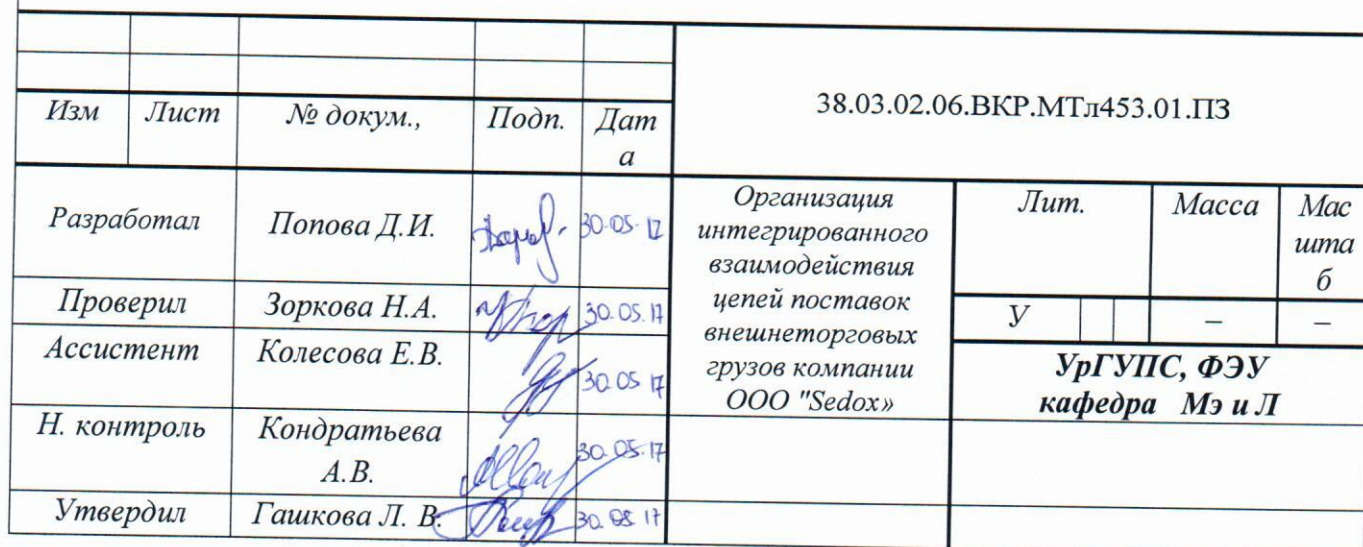 38.03.02.06.ВКР.МТл453.01.ПЗ
Изм Лист № докум., Подп. Дат
а
Разработал Попова Д.И. 30.05.17
Проверил Зоркова Н.А. 30.05.17
Ассистент Колесова Е.В. 30.05 17
Н. контроль Кондратьева
А.В. 30.05.17
Утвердил Гашкова Л. В. 30.05 17
Организация
интегрированного
взаимодействия
цепей поставок
внешнеторговых
грузов компании
ООО "Sedox»
Лит. Масса Мас
шта
б
У – –
УрГУПС, ФЭУ
кафедра Мэ и Л